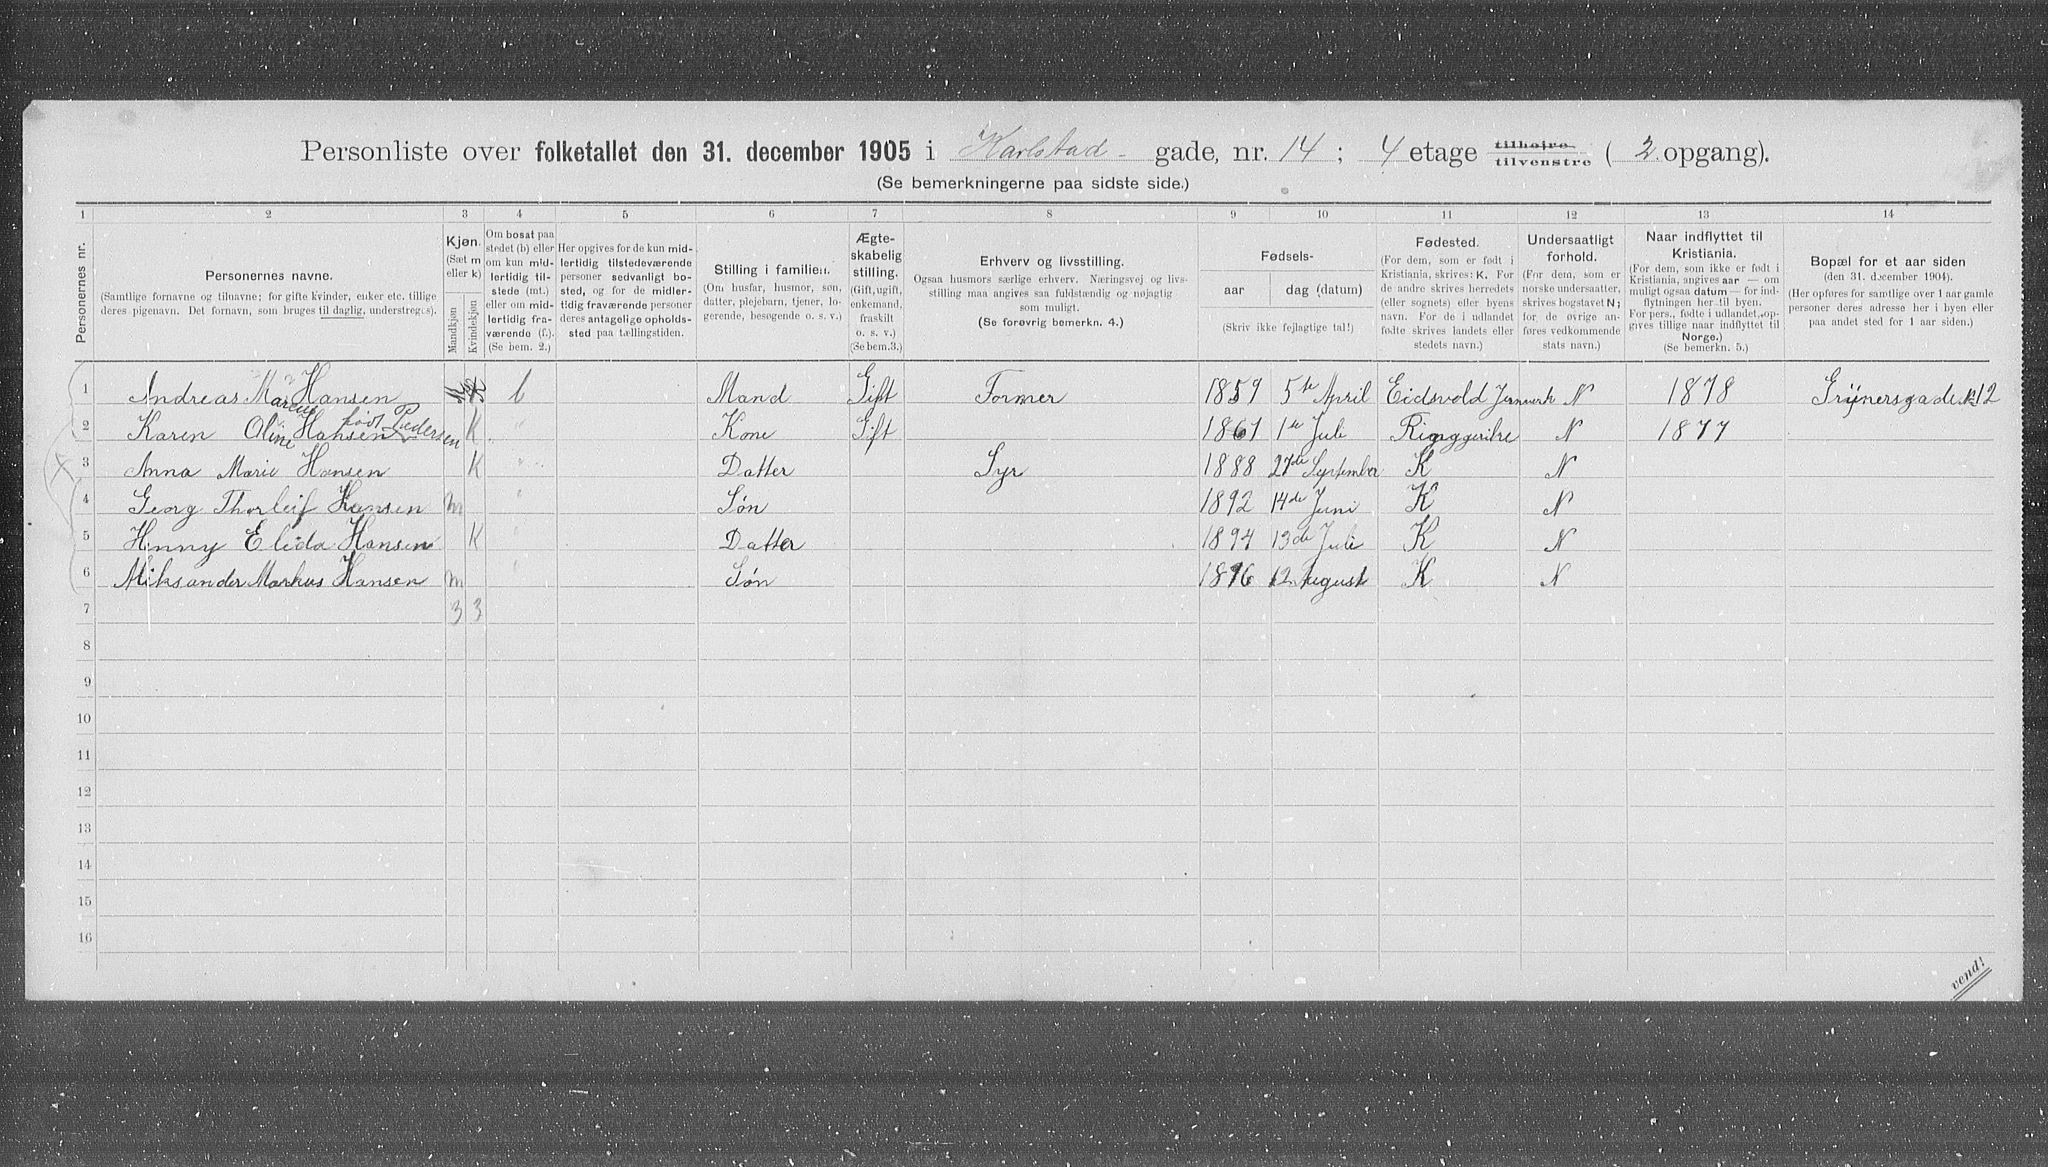 Personliste over folketallet den 31. december 1905 i Karlstad- gade, nr. 14; 4 etage tilhøjre tilvenstre (2 opgang).
(Se bemerkningerne paa sidste side.)
1 2 3 4 5 6 7 8 9 10 11 12 13 14
Personernes nr.
Personernes navne.
(Samtlige fornavne og tilnavne; for gifte kvinder, enker etc. tillige deres pigenavn. Det fornavn, som bruges til daglig, understreges).
Kjøn.
(Sæt m eller k)
Mandkjøn
Kvindekjøn
Om bosat paa stedet (b) eller om kun midlertidig tilstede (mt.) eller om midlertidig fraværende (f.). (Se bem. 2.)
Her opgives for de kun midlertidig tilstedeværende personer sedvanligt bosted, og for de midlertidig fraværende personer deres antagelige opholdssted paa tællingstiden.
Stilling i familien.
(Om husfar, husmor, søn, datter, plejebarn, tjener, logerende, besøgende o. s. v.)
Ægteskabelig stilling.
(Gift, ugift, enkemand, fraskilt o. s. v.)
(Se bem.3.)
Erhverv og livsstilling.
Ogsaa husmors særlige erhverv. Næringsvej og livsstilling maa angives saa fuldstændig og nøjagtig som muligt.
(Se forøvrig bemerkn. 4.)
Fødsels-
aar
dag (datum)
(Skriv ikke fejlagtige tal!)
Fødested.
(For dem, som er født i Kristiania, skrives: K. For de andre skrives herredets (eller sognets) eller byens navn. For de i udlandet fødte skrives landets eller stedets navn.)
Undersaatligt forhold.
(For dem, som er norske undersaatter, skrives bogstavet N; for de øvrige anføres vedkommende stats navn.)
Naar indflyttet til Kristiania.
(For dem, som ikke er født i Kristiania, angives aar — om muligt ogsaa datum — for indflytningen her til byen. For pers., fødte i udlandet, opgives tillige naar indflyttet til Norge.)
(Se bemerkn. 5.)
Bopæl for et aar siden
(den 31. december 1904).
(Her opføres for samtlige over 1 aar gamle personer deres adresse her i byen eller paa andet sted for 1 aar siden.)
1 Andreas Marcus Hansen b Mand Gift Former 1859 5te April Eidsvold Jernverk N 1878 Grünersgade 12
2 Karen Oline Hansen født Pedersen K " Kone Gift 1861 1te Juli Ringgerike N 1877
3 Anna Marie Hansen K " Datter Syr 1888 27de September K N
4 Georg Thorleif Hansen m " Søn 1892 14de Juni K N
5 Henny Elida Hansen K " Datter 1894 13de Juli K N
6 Aliksander Markus Hansen m " Søn 1896 12 August K N
7 3 3
8
9
10
11
12
13
14
15
16
vend!